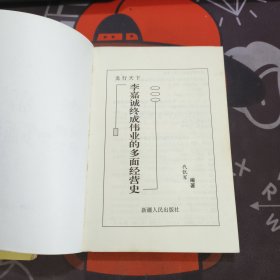 志行天下
李嘉诚终成伟业的多面经营史
编著
新疆人民出版社